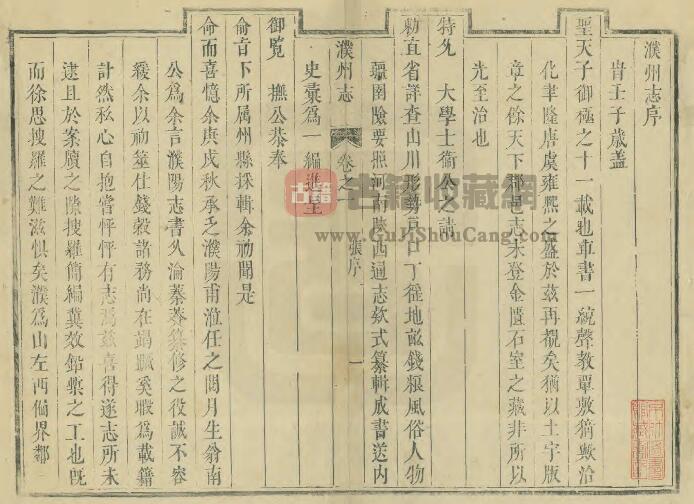 濮州志序
聖天子御極之十一載也車書一統聲教單敷猗歟洽
化聿隆唐虞雍熙之盛於茲再覩矣猶以土宇版
章之餘天下郡邑志未登金匱石室之藏非所以
光至治也
特允　大學士衛公之請
勅直省詳查山川形勢戶口丁徭地畝錢粮風俗人物
疆圉險要照河南陝西通志欸式纂輯成書送內
濮州志　卷之一　張序　一
史彙爲一編進呈
御覧　撫公恭奉
俞旨下所属州縣採輯余初聞是
命而喜憶余庚戌秋承乏濮陽甫涖任之閱月生翁南
公爲余言濮陽志書久淪蓁莽纂修之役誠不容
緩余以初筮仕錢穀諸務尚在蹋蹶奚暇爲載籍
計然私心自抱嘗怦怦有志焉茲喜得遂志所未
逮且於案牘之隙搜羅簡編冀效鉛槧之工也旣
而徐思搜羅之難滋惧矣濮爲山左西偏界鄰
古籍
古籍收藏网
www.GuJiShouCang.com